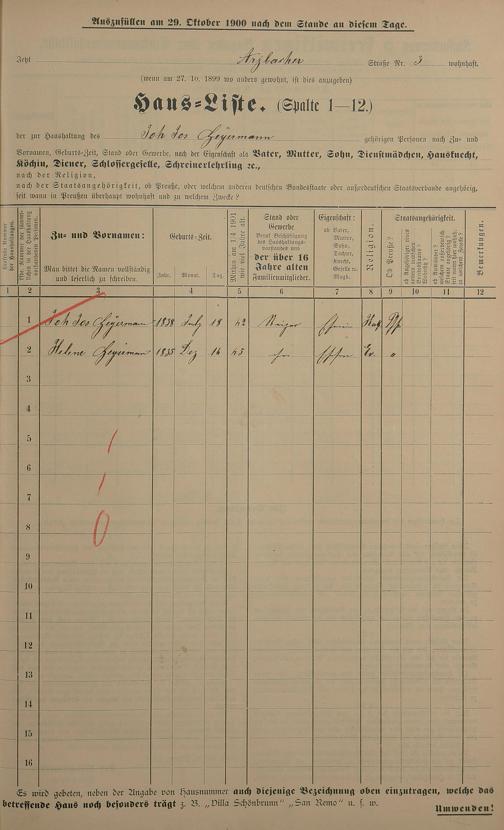 Auszufüllen am 29. Oktober 1900 nach dem Stande an diesem Tage.
Jetzt Arzbacher Straße Nr. 3 wohnhaft.
(wenn am 27. 10. 1899 wo anders gewohnt, ist dies anzugeben)
Haus=Liste. (Spalte 1—12.)
der zur Haushaltung des Joh Jos Heyermann gehörigen Personen nach Zu- und
Vornamen, Geburts-Zeit, Stand oder Gewerbe, nach der Eigenschaft als Vater, Mutter, Sohn, Dienstmädchen, Hausknecht,
Köchin, Diener, Schlossergeselle, Schreinerlehrling ꝛc.,
nach der Religion,
nach der Staatsangehörigkeit, ob Preuße, oder welchem anderen deutschen Bundesstaate oder außerdeutschen Staatsverbande angehörig,
seit wann in Preußen überhaupt wohnhaft und zu welchem Zwecke?
Zu- und Vornamen:
Man bittet die Namen vollständig
und leserlich zu schreiben.
Geburts-Zeit.
Jahr. Monat. Tag.
Mithin am 1/4 1901
wie viel Jahre alt.
Stand oder
Gewerbe
Beruf Beschäftigung
des Haushaltungs-
vorstandes und
der über 16
Jahre alten
Familienmitglieder.
Eigenschaft:
ob Vater,
Mutter,
Sohn,
Tochter,
Knecht,
Geselle ꝛc.
Magd.
Religion.
Staatsangehörigkeit.
Ob Preuße?
Bemerkungen.
1 2 3 4 5 6 7 8 9 10 11 12
1 Joh Jos Heyermann 1858 July 18 42
2 Helene Heyermann 1855 Dez 14 45 Ev. "
3
4
5
6
7
8
9
10
11
12
13
14
15
16
Es wird gebeten, neben der Angabe von Hausnummer auch diejenige Bezeichnung oben einzutragen, welche das
betreffende Haus noch besonders trägt z. B. „Villa Schönbrunn" „San Remo" u. s. w.
Umwenden!